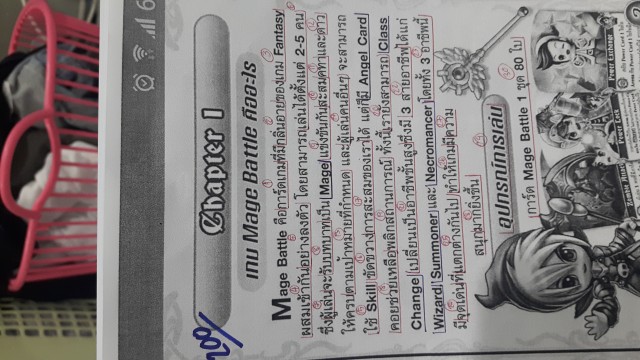 Chapter 1
เกม Mage Battle คืออะไร
Mage Battle คือการ์ดเกมที่มีกลิ่นอายของเกม Fantasy
ผสมเข้ากันอย่างลงตัว โดยสามารถเล่นได้ตั้งแต่ 2-5 คน
ซึ่งผู้เล่นจะรับบทบาทเป็น Mage แข่งขันกันสะสมคทาและดาว
ให้ครบตามเป้าหมายที่กำหนด และผู้เล่นคนอื่นๆ จะสามารถ
ใช้ Skill ขัดขวางการสะสมของเราได้ แต่ก็มี Angel Card
คอยช่วยเหลือพลิกสถานการณ์ ทั้งนี้เรายังสามารถ Class
Change เปลี่ยนเป็นอาชีพขั้นสูงซึ่งมี 3 สายอาชีพได้แก่
Wizard Summoner และ Necromancer โดยทั้ง 3 อาชีพนี้
มีจุดเด่นที่แตกต่างกันไป ทำให้เกมมีความ
สนุกมากยิ่งขึ้น
อุปกรณ์การเล่น
การ์ด Mage Battle 1 ชุด 80 ใบ